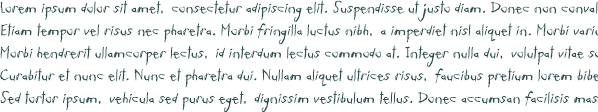 Lorem ipsum dolor sit amet, consectetur adipiscing elit. Suspendisse ut justo diam. Donec non conval
Etiam tempor vel risus nec pharetra. Morbi fringilla luctus nibh, a imperdiet nisl aliquet in. Morbi variu
Morbi hendrerit ullamcorper lectus, id interdum lectus commodo at. Integer nulla dui, volutpat vitae su
Curabitur et nunc elit. Nunc et pharetra dui. Nullam aliquet ultrices risus, faucibus pretium lorem bibe
Sed tortor ipsum, vehicula sed purus eget, dignissim vestibulum tellus. Donec accumsan facilisis mas